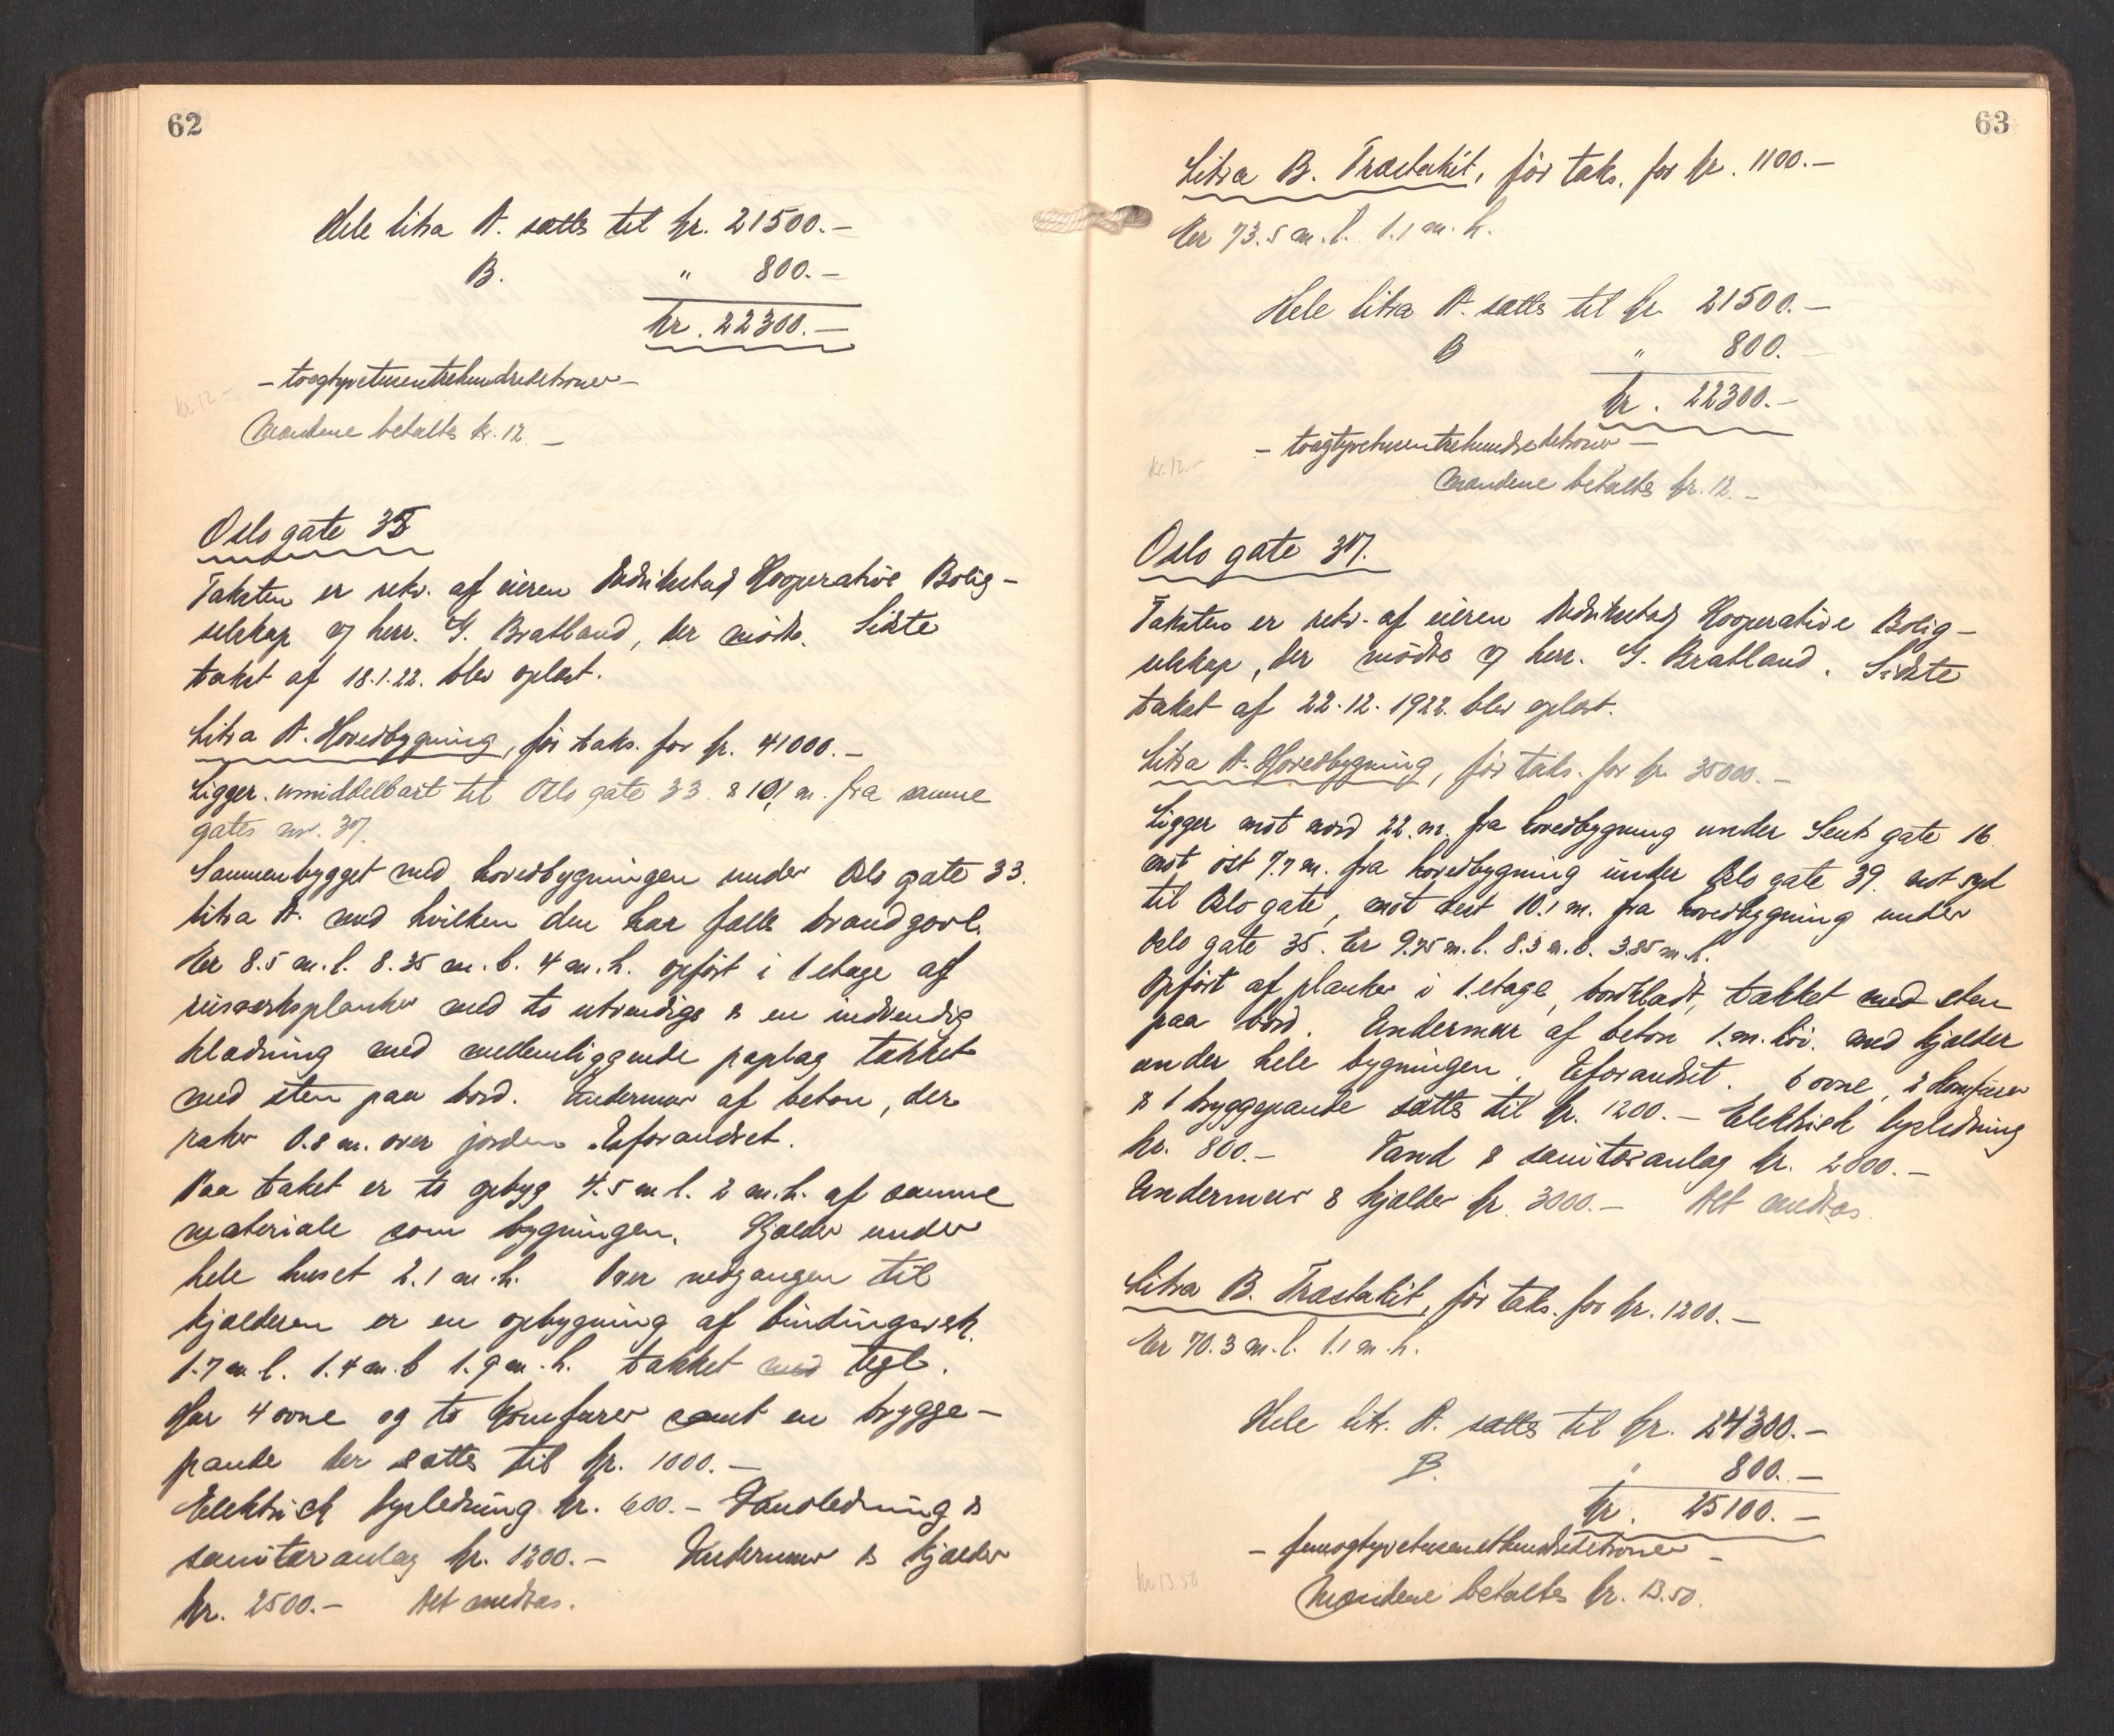 62
Hele litra A. sættes til kr. 21500.-
B. " 800.-
kr. 22300.-
- toogtyvetusentrehundredekroner -
kr. 12 -
Mændene betaltes kr. 12. -
Oslo gate 35
Taksten er rekv. af eieren Fredrikstad Kooperative Bolig-
selskap og herr. G. Bratland, der mødte. Sidste
takst af 18.1.22. blev oplæst.
Litra A. Hovedbygning, før taks. for kr. 41000.-
Ligger umiddelbart til Oslo gate 33. & 10,1 m. fra samme
gates nr. 37.
Sammenbygget med hovedbygningen under Oslo gate 33.
litra A. med hvilken den har fælles brandgavl.
Er 8.5 m. l. 8.35 m. b. 4 m. h. opført i 1 etage af
reisverksplanker med to utvendige & en indvendig
klædning med mellemliggende paplag tækket
med sten paa bord. Undermur af beton, der
raker 0.8 m. over jorden. Uforandret.
Paa taket er to opbyg 4.5 m l. 2 m. h. af samme
materiale som bygningen. Kjælder under
hele huset 2.1 m. h. Over nedgangen til
kjælderen er en opbygning af bindingsverk.
1.7 m l. 1.4 m. b 1.9 m. h. tækket med tegl.
Har 4 ovne og to komfurer samt en brygge-
pande der sættes til kr. 1000. -
Elektrisk lysledning kr. 600.- Vandledning &
sanitæranlæg kr. 1200.- Undermur & kjælder
kr. 2500.- Alt medtas.
63
Litra B. Træstakit, før taks. for kr. 1100.-
Er 73.5 m. l. 1.1 m. h.
Hele litra A. sættes til kr. 21500.-
B " 800.-
kr. 22300.-
- toogtyvetusentrehundredekroner -
kr. 12.-
Mændene betaltes kr. 12. -
Oslo gate 37.
Taksten er rekv. af eieren Fredrikstad Kooperative Bolig-
selskap, der mødte og herr. G. Bratland. Sidste
takst af 22.12.1922. blev oplæst.
Litra A. Hovedbygning, før taks. for kr. 35000.-
Ligger mot nord 22. m. fra hovedbygning under Gate 16.
mot øst 7.7 m. fra hovedbygning under Oslo gate 39. mot syd
til Oslo gate, mot vest 10.1 m. fra hovedbygning under
Oslo gate 35. Er 9.75 m. l. 8.3 m. b. 3.85 m. h.
Opført af planker i 1. etage, bordklædt, tækket med sten
paa bord. Undermur af beton 1. m. høi. med kjælder
under hele bygningen. Uforandret. 6 ovne, 2 komfurer
& 1 bryggepande sættes til kr. 1200.- Elektrisk lysledning
kr. 800.- Vand & sanitæranlæg kr. 2000.-
Undermur & kjælder kr. 3000.- Alt medtas.
Litra B. Træstakit, før taks. for kr. 1200.-
Er 70.3 m. l. 1.1 m. h.
Hele litr. A. sættes til kr. 24300.-
B. " 800.-
kr. 25100.-
- femogtyvetusenethundredekroner -
kr 13.50
Mændene betaltes kr. 13.50.